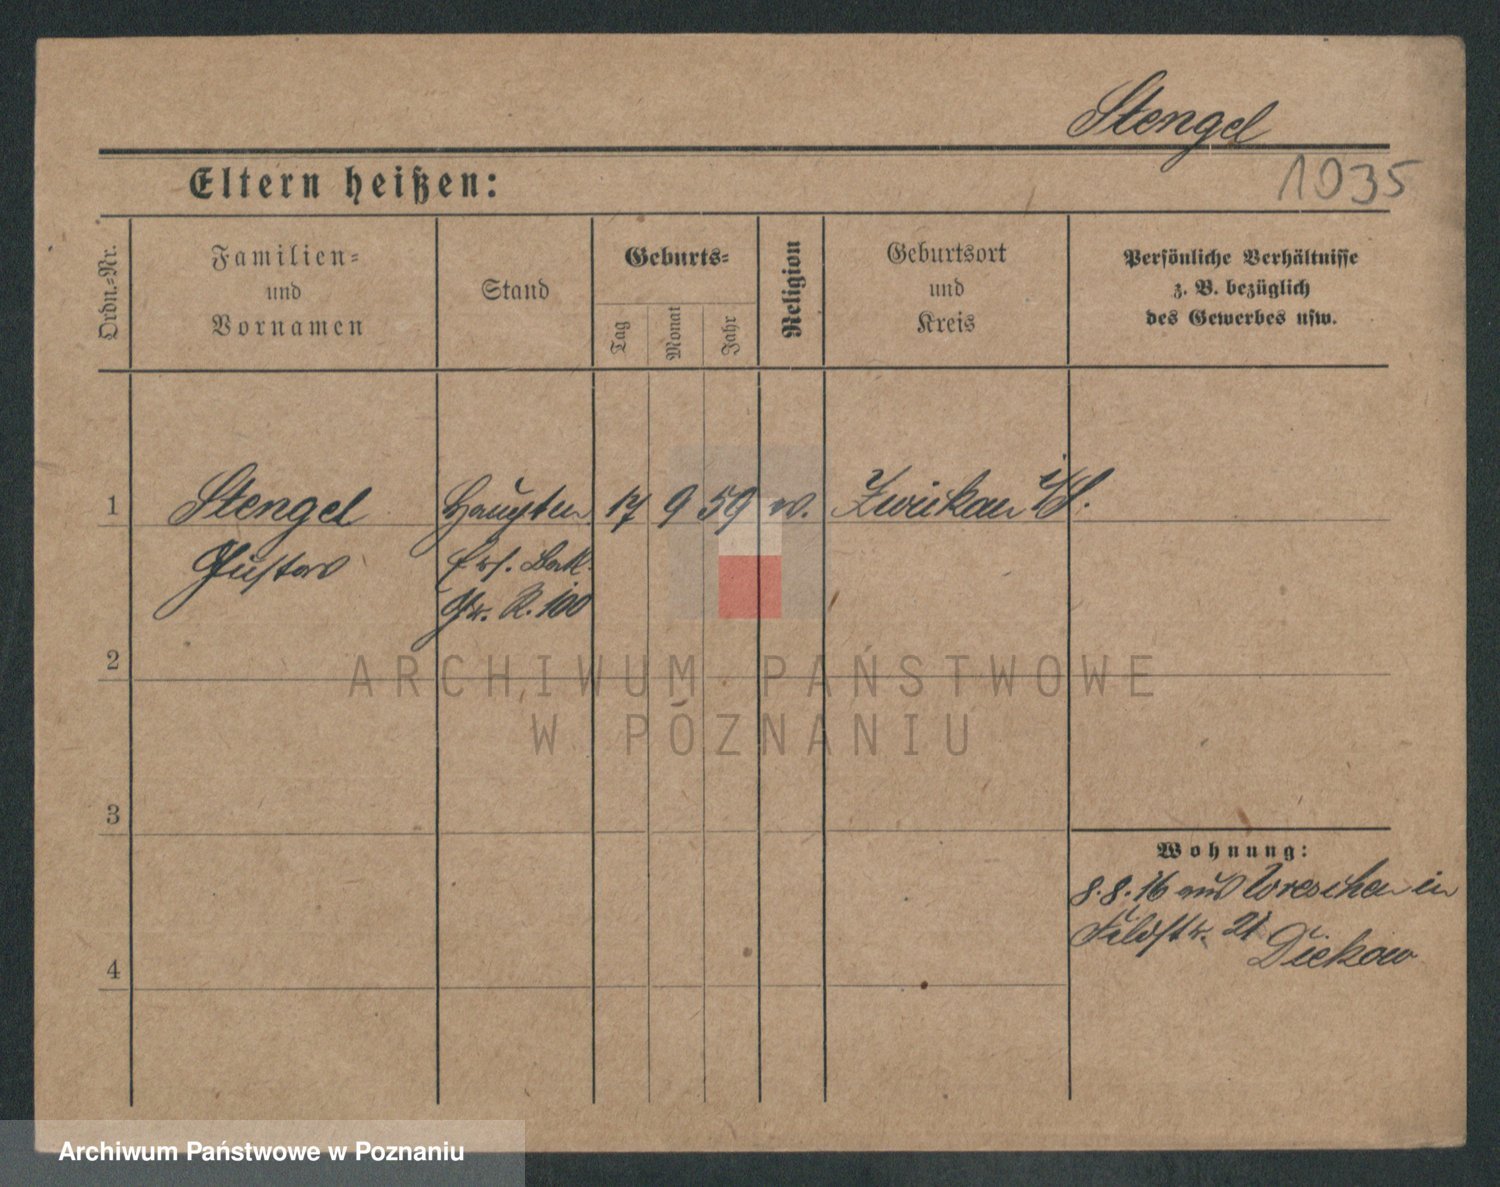 Stengel
1035
Eltern heißen:
Ordn.-Nr.
Familien-
und
Vornamen
Stand
Geburts-
Tag
Monat
Jahr
Religion
Geburtsort
und
Kreis
Persönliche Verhältnisse
z. B. bezüglich
des Gewerbes usw.
1
Stengel
Gustav
Hauptm.
Ers. Batl.
Gr. R. 100
17
9
59
ev.
Zwickau i/S.
2
3
4
Wohnung:
8.8.16 aus Wreschen in
Feldstr. 21
Dickow
ARCHIWUM PAŃSTWOWE
W POZNANIU
Archiwum Państwowe w Poznaniu